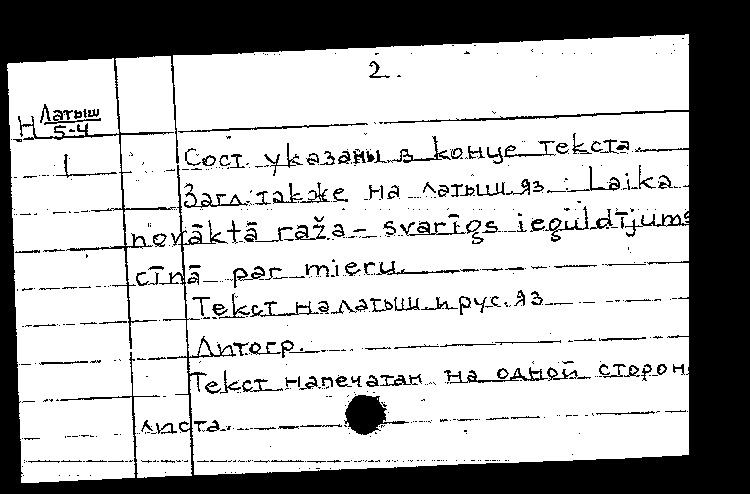 2.
Н Латыш
5-4
1
Сост. указаны в конце текста.
Загл. также на латыш. яз.: Laika
novāktā raža - svarīgs ieguldījums
cīņā par mieru.
Текст на латыш. и рус. яз.
Литогр.
Текст напечатан на одной сторон
листа.